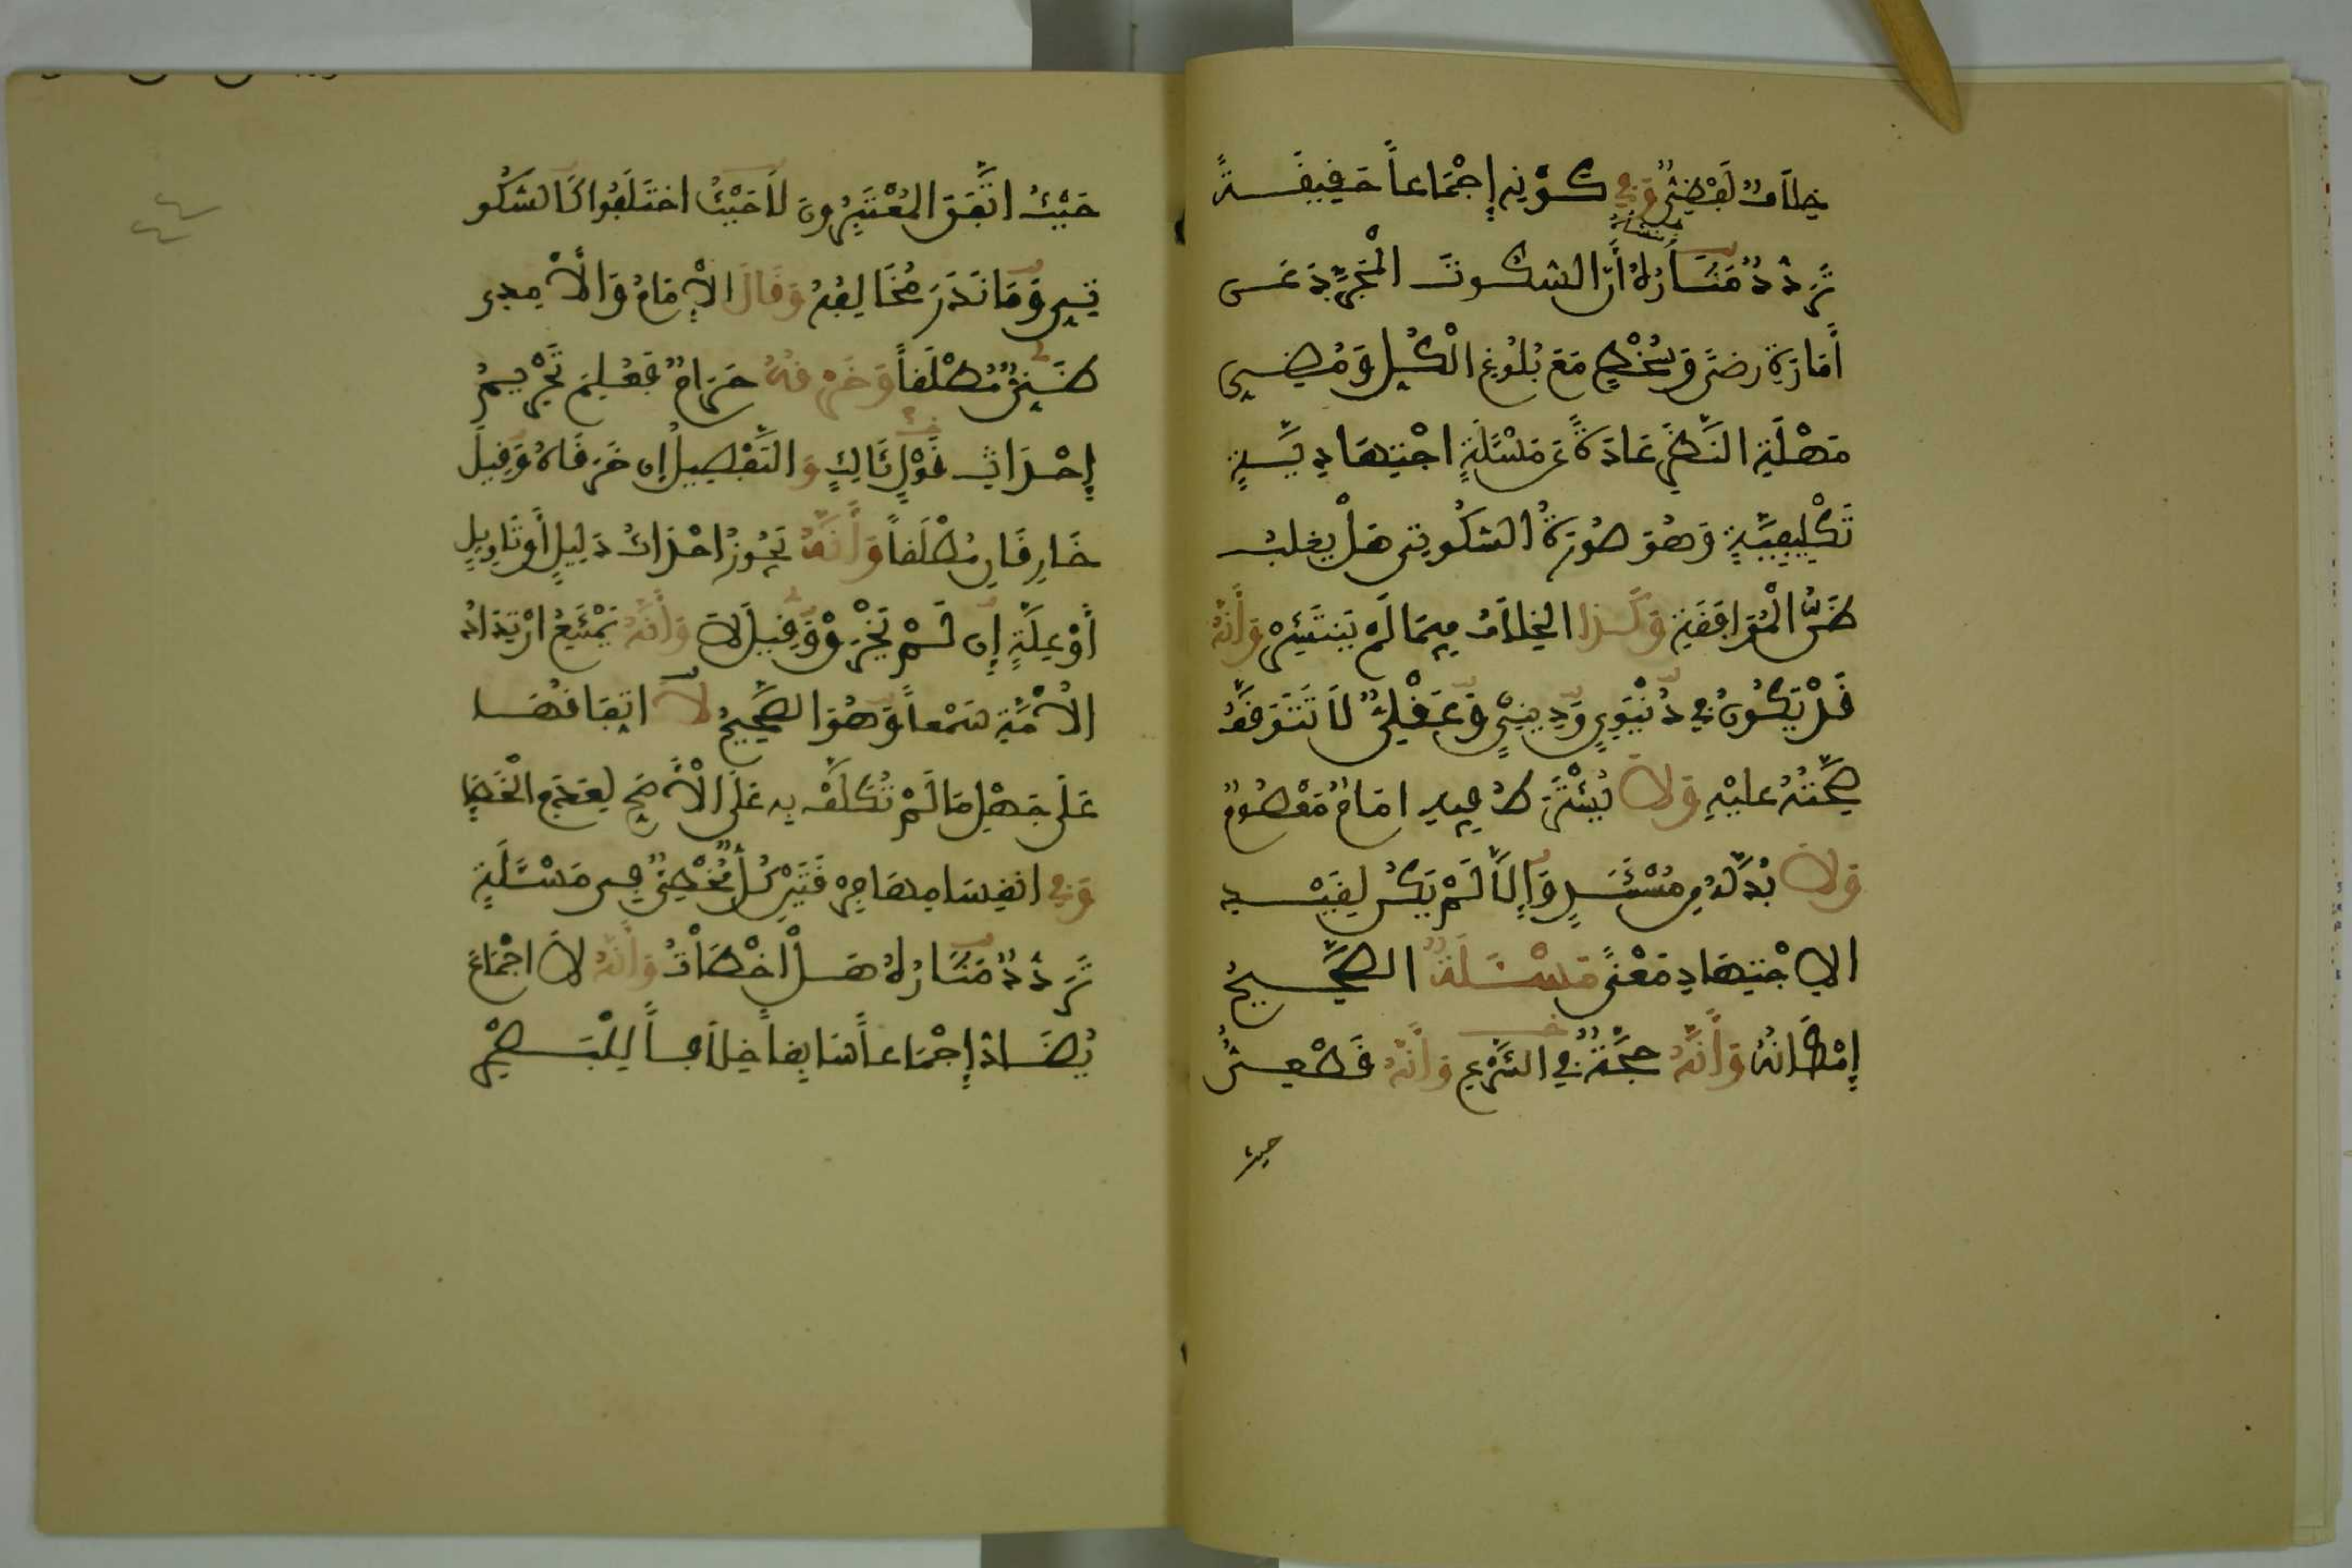 خِلَافٌ لَفْظِيٌّ وَفِي كَوْنِهِ إِجْمَاعاً حَقِيقَةً
تَرَدُّدٌ مَثَارُهُ أَنَّ السُّكُوتَ الْمُجَرَّدَ عَن
أَمَارَةِ رِضًى وَسُخْطٍ مَعَ بُلُوغِ الْكُلِّ وَمُضِيِّ
مُهْلَةِ النَّظَرِ عَادَةً عَن مَسْئَلَةٍ اجْتِهَادِيَّةٍ
تَكْلِيفِيَّةٍ وَهُوَ صُورَةُ السُّكُوتِي هَلْ يغلبُ
ظَنُّ الْمُوَافَقَةِ وَكَذَا الخِلَافُ فِيمَا لَمْ يَنتَشِرْ وَأَنَّهُ
قَدْ يَكُونُ فِي دُنْيَوِيٍ وَدِينِيٍّ وَعَقْلِيٍّ لَا تَتَوَقَّفُ
صِحَّتُهُ عليْهِ وَلَا يُشْتَرَطُ فِيهِ امَامٌ مَعْصُومٌ
وَلَا بُدَّ لَهُ مِن مُسْتَنَدٍ وَإِلَّا لَمْ يَكُن لِقَيْدِ
الاِجْتِهَادِ مَعْنًى مَسْئَلَةٌ الصَّحِيحُ
إِمْكَانُهُ وَأَنَّهُ حُجَّةٌ فِي الشَّرْعِ وَأَنَّهُ قَطْعِيٌّ
حيث
حَيْثُ اتَّفَقَ المُعْتَبِرُونَ لَا حَيْثُ اختَلَفُوا كَالسُّكُو
تِيِ وَمَا نَدَرَ مُخَالِفُهُ وَقَالَ الْإِمَامُ وَالْأَمِدِي
ظَنِّيٌّ مُطْلَقاً وَخَرْقُهُ حَرَامٌ فَعُلِمَ تَحْرِيمُ
إِحْدَاثِ قَوْلٍ ثَالِثٍ وَالتَّفْصِيلُ إِن خَرَقَاهُ وَقِيلَ
خَارِقَانِ مُطْلَقاً وَأَنَّهُ يَجُوزُ احْدَاثُ دَلِيلٍ أَو تَاوِيلٍ
أَوْ عِلَّةٍ إِن لَمْ يَخْرِقْ وَقِيلَ لَا وَأَنَّهُ يَمْتَنِعُ ارْتِدَادُ
الْأُمَّةِ سَمْعاً وَهُوَ الصَّحِيحُ لَا اتِّفَاقُهَا
عَلَى جَهْلِ مَا لَمْ تُكَلَّفْ بِهِ عَلَى الْأَصَحِّ لِعَدَمِ الْخَطَإِ
وَفِي انقِسَامِهَا فِرْقَتَيْنِ كُلٌّ مُخْطِئٌ فِي مَسْئَلَةٍ
تَرَدُّدٌ مَثَارُهُ هَلْ أَخْطَأَتْ وَأَنَّهُ لَا اجْمَاعَ
يُضَادُّ إِجْمَاعاً سَابِقاً خِلَافاً لِلْبَصْرِيِّ